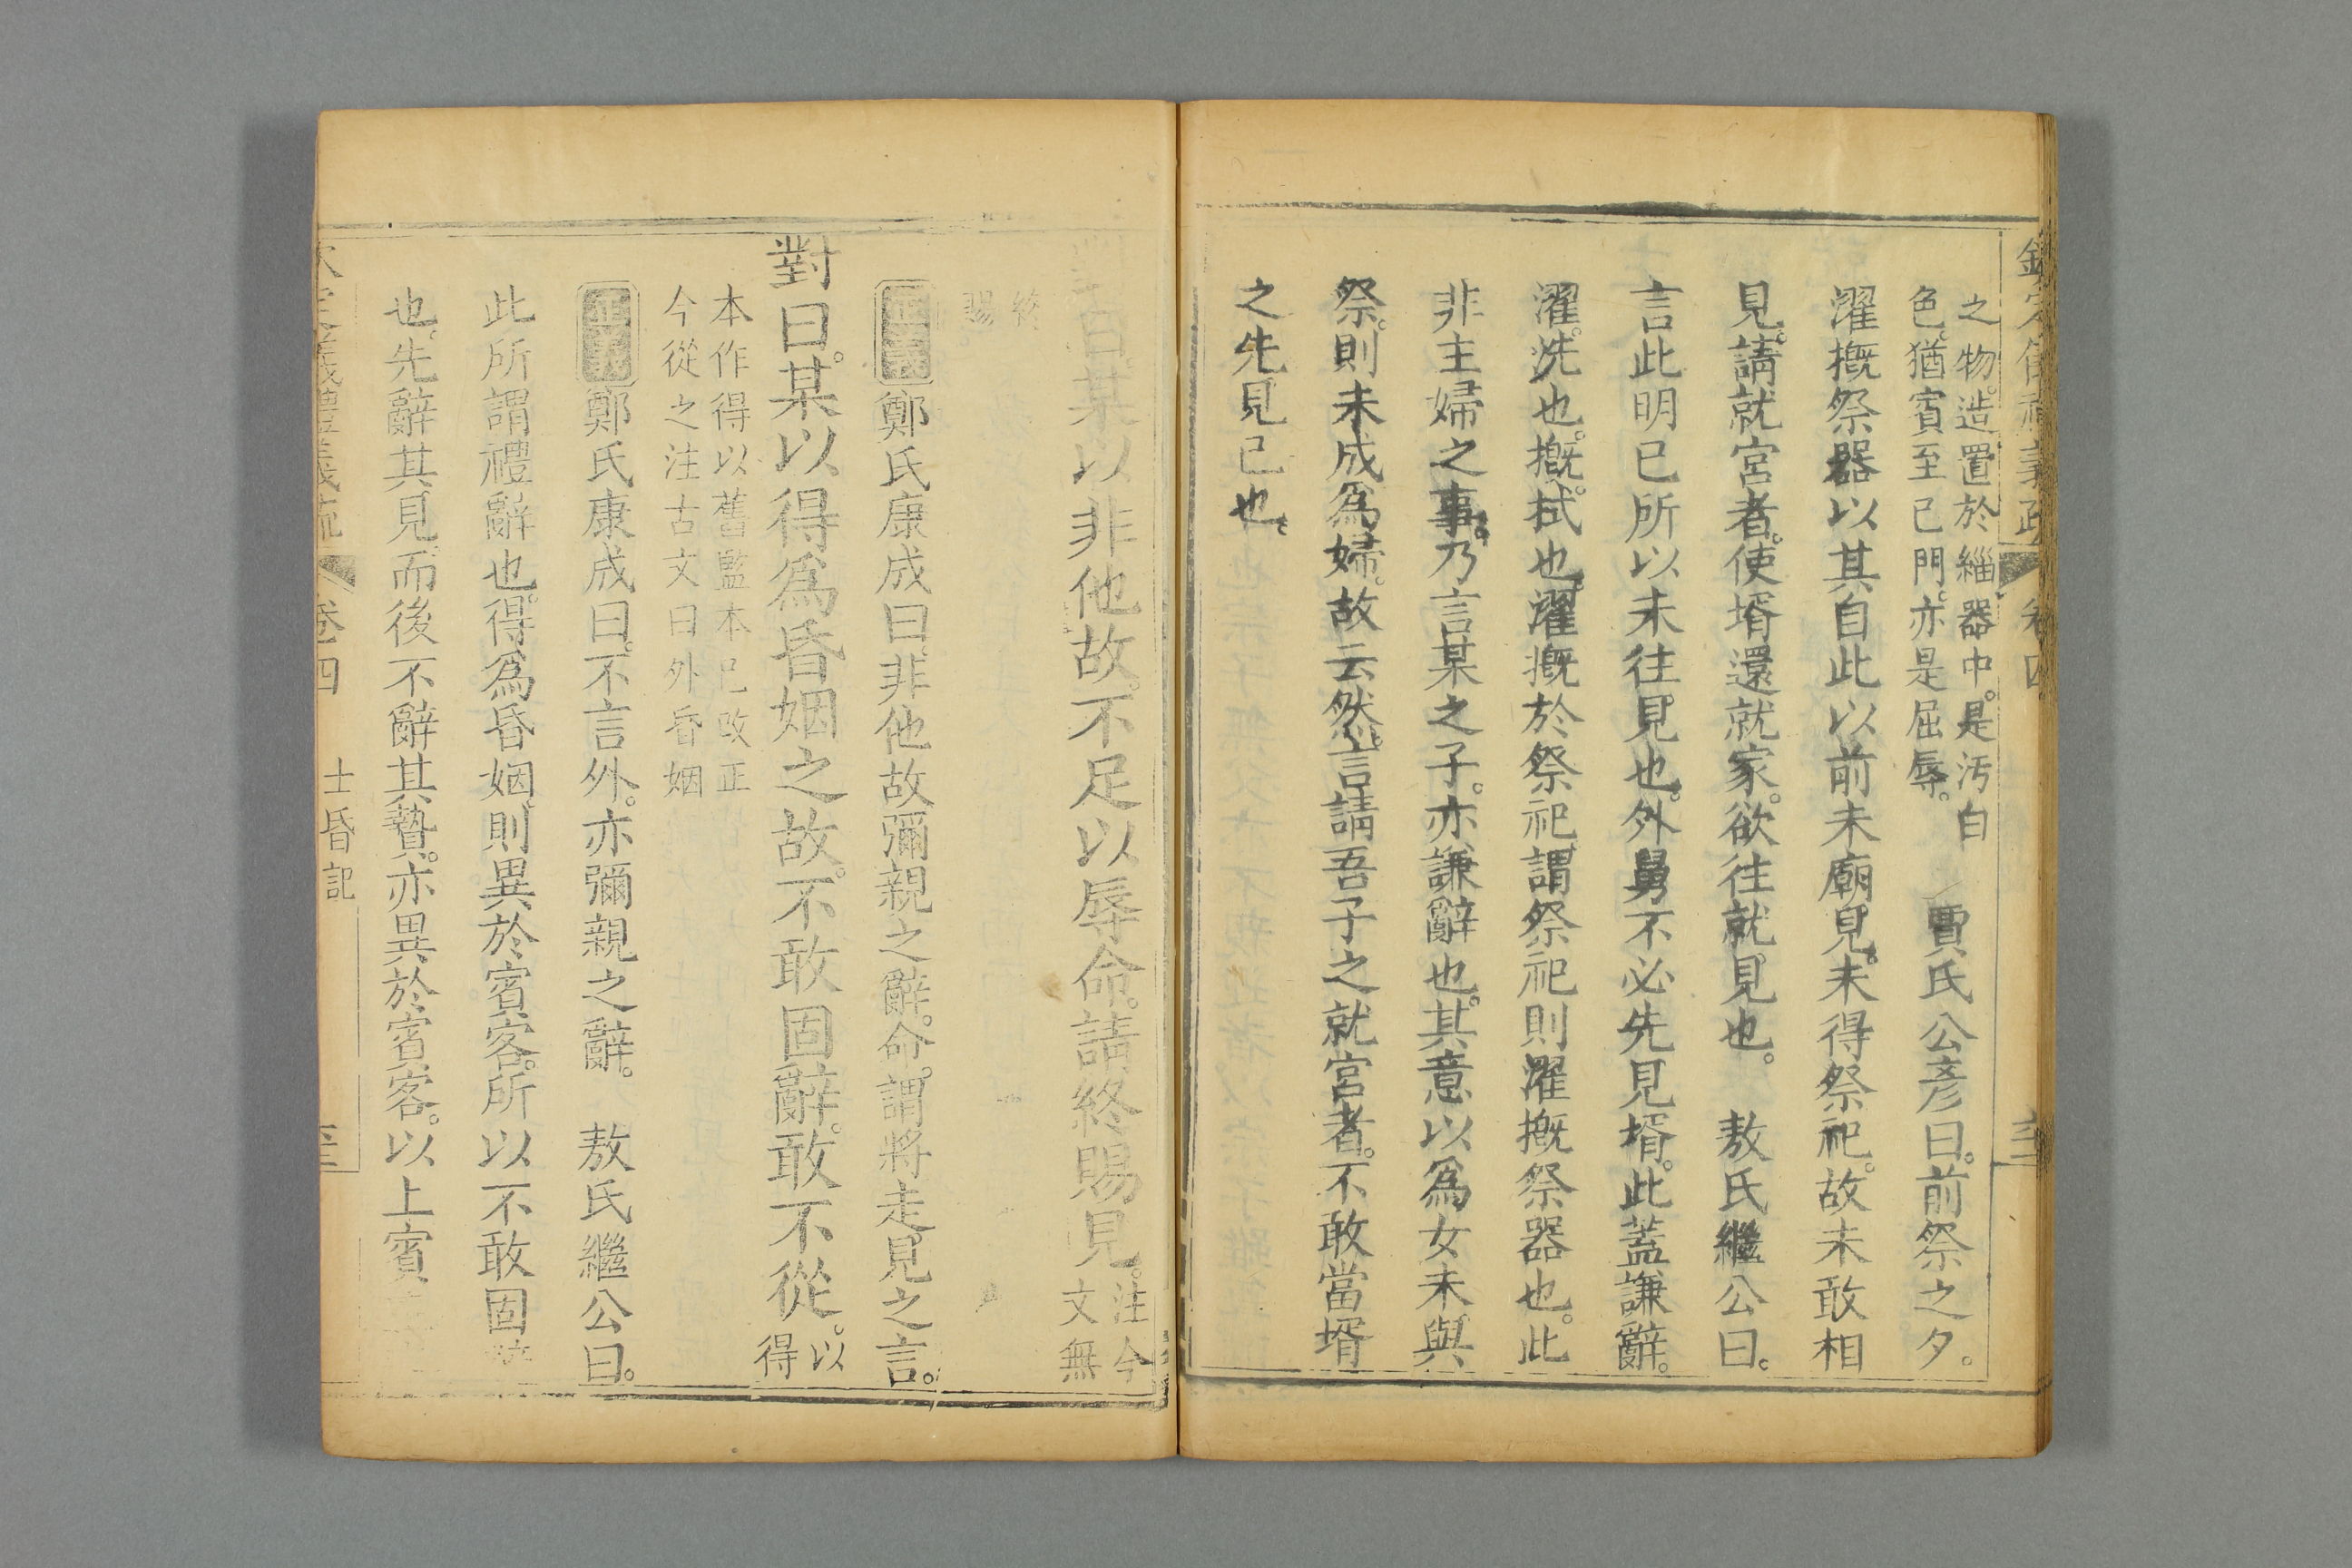 之物。造置於緇器中。是汚白
色。猶賓至己門。亦是屈辱。
賈氏公彥曰。前祭之夕。
濯摡祭器以其自此以前未廟見。未得祭祀。故未敢相
見。請就宮者。使壻還就家。欲往就見也。 敖氏繼公曰。
言此明已所以未往見也。外舅不必先見壻。此蓋謙辭。
濯。洗也。摡。拭也。濯摡於祭祀。謂祭祀則濯摡祭器也。此
非主婦之事。乃言某之子。亦謙辭也。其意以爲女未與
祭。則未成爲婦。故云然。言請吾子之就宮者。不敢當壻
之先見己也。
對曰某以非他故。不足以辱命。請終賜見。
注今
文無
終
賜
正義鄭氏康成曰。非他故。彌親之辭。命。謂將走見之言。
對曰。某以得爲昏姻之故。不敢固辭。敢不從。
以
得
本作得以舊監本已改正
今從之注古文曰外昏姻
正義鄭氏康成曰。不言外。亦彌親之辭。 敖氏繼公曰。
此所謂禮辭也。得爲昏姻。則異於賓客。所以不敢固
也。先辭其見。而後不辭其贄。亦異於賓客。以上賓
義禮義疏 卷四 士昏記